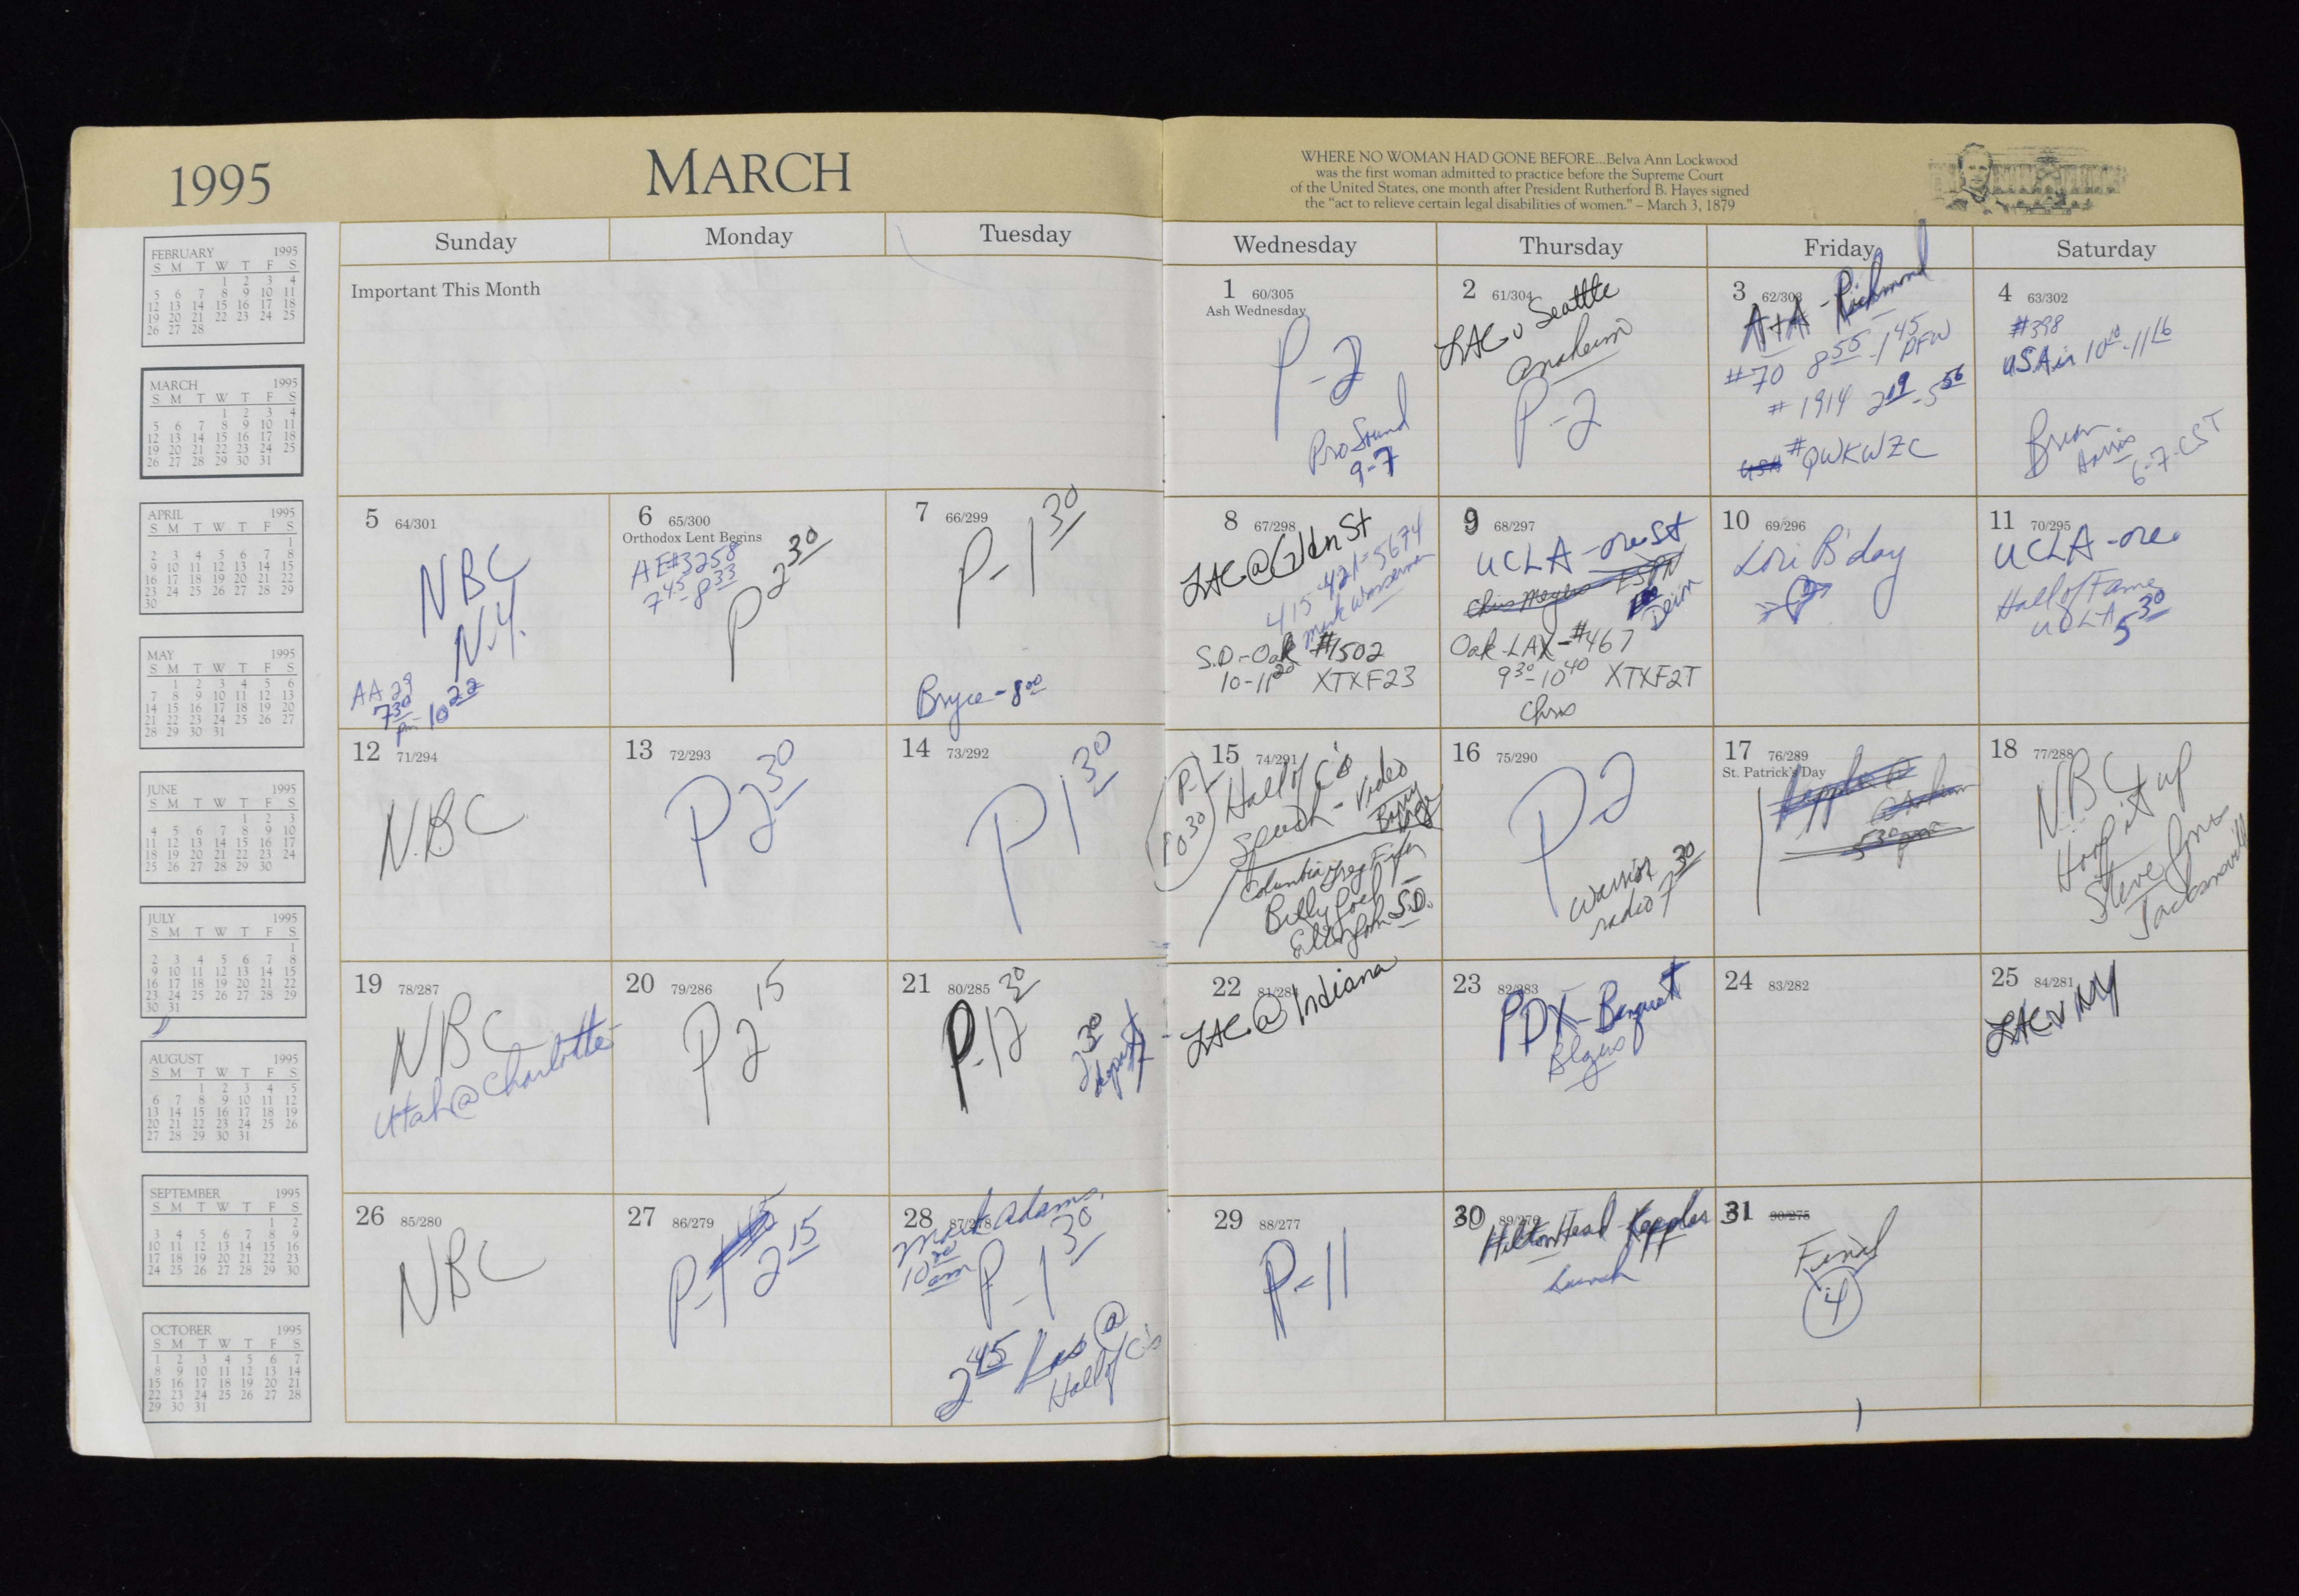 1995
MARCH
WHERE NO WOMAN HAD GONE BEFORE...Belva Ann Lockwood
was the first woman admitted to practice before the Supreme Court
of the United States, one month after President Rutherford B. Hayes signed
the "act to relieve certain legal disabilities of women." – March 3, 1879
Sunday
Monday
Tuesday
Wednesday
Thursday
Friday
Saturday
Important This Month
1 60/305
Ash Wednesday
P-2
Pro Sound
9-7
2 61/304
LAC v Seattle
Anaheim
P-2
3 62/303
A+A - Richmond
#70 8 55 - 1 45 DFW
#1914 2 19 - 5 56
#QWKWZC
4 63/302
#398
USAir 10 10 - 11 16
Brian
6-7-CST
5 64/301
NBC
N.Y.
AA 29
7 30 pm - 10 22
6 65/300
Orthodox Lent Begins
AE#3258
7 45 - 8 33
P 2 30
7 66/299
P-1 30
Bryce - 8 00
8 67/298
LAC @ Gldn St
415-421-5674
Mark Wasserman
S.D.-Oak #1502
10-11 20 XTXF23
9 68/297
UCLA - ore St
Chris Meyers ESPN
Oak-LAX-#467
9 30 - 10 40 XTXF2T
Chris
10 69/296
Lori B'day
11 70/295
UCLA - ore.
Hall of Fame
UCLA 5 30
12 71/294
NBC
13 72/293
P 2 30
14 73/292
P 1 30
15 74/291
P.
10 30
Hall of C's
Speech - Video
Columbia Greg
Billy Joel
Elton John S.D.
16 75/290
P-2
Warrior
radio 7 30
17 76/289
St. Patrick's Day
5 30 pm
18 77/288
NBC
Hoop it up
Steve Jones
Jacksonville
19 78/287
NBC
Utah @ Charlotte
20 79/286
P 2 15
21 80/285
P-12 30
2 30
depart
22 81/284
LAC @ Indiana
23 82/283
PDX - Banquet
Blazers
24 83/282
25 84/281
LAC v NY
26 85/280
NBC
27 86/279
P-1 45
2 15
28 87/278
Mark Adams
10 30 am
P-1 30
2 45 Las @
Hall of C's
29 88/277
P-11
30 89/276
Hilton Head - Kapples
Lunch
31 90/275
Final
4
FEBRUARY 1995
S M T W T F S
1 2 3 4
5 6 7 8 9 10 11
12 13 14 15 16 17 18
19 20 21 22 23 24 25
26 27 28
MARCH 1995
S M T W T F S
1 2 3 4
5 6 7 8 9 10 11
12 13 14 15 16 17 18
19 20 21 22 23 24 25
26 27 28 29 30 31
APRIL 1995
S M T W T F S
1
2 3 4 5 6 7 8
9 10 11 12 13 14 15
16 17 18 19 20 21 22
23 24 25 26 27 28 29
30
MAY 1995
S M T W T F S
1 2 3 4 5 6
7 8 9 10 11 12 13
14 15 16 17 18 19 20
21 22 23 24 25 26 27
28 29 30 31
JUNE 1995
S M T W T F S
1 2 3
4 5 6 7 8 9 10
11 12 13 14 15 16 17
18 19 20 21 22 23 24
25 26 27 28 29 30
JULY 1995
S M T W T F S
1
2 3 4 5 6 7 8
9 10 11 12 13 14 15
16 17 18 19 20 21 22
23 24 25 26 27 28 29
30 31
AUGUST 1995
S M T W T F S
1 2 3 4 5
6 7 8 9 10 11 12
13 14 15 16 17 18 19
20 21 22 23 24 25 26
27 28 29 30 31
SEPTEMBER 1995
S M T W T F S
1 2
3 4 5 6 7 8 9
10 11 12 13 14 15 16
17 18 19 20 21 22 23
24 25 26 27 28 29 30
OCTOBER 1995
S M T W T F S
1 2 3 4 5 6 7
8 9 10 11 12 13 14
15 16 17 18 19 20 21
22 23 24 25 26 27 28
29 30 31